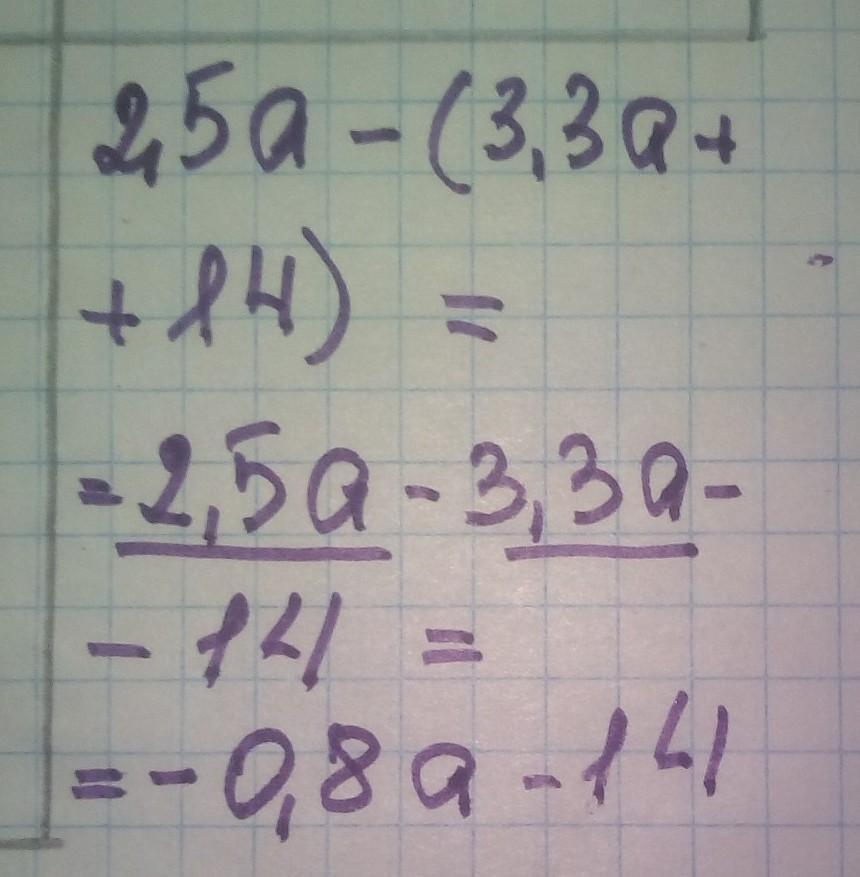 2,5a - (3,3a +
+ 14) =
= 2,5a - 3,3a -
- 14 =
= - 0,8a - 14